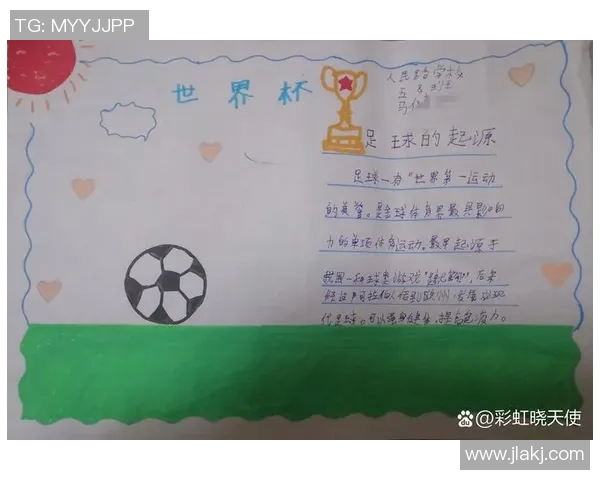 TG: MYYJJPP
世界杯
人民路学校
五
马
足球的起源
足球一有“世界第一运动
的美誉。是全球体育界最具影响
力的单项体育运动。最早起源于
我国一种球类游戏“蹴鞠”,后来
经过阿拉伯人传到欧州·发展成现
代足球。可以强身健体,提高免疫力。
@彩虹晓天使
www.jlakj.com